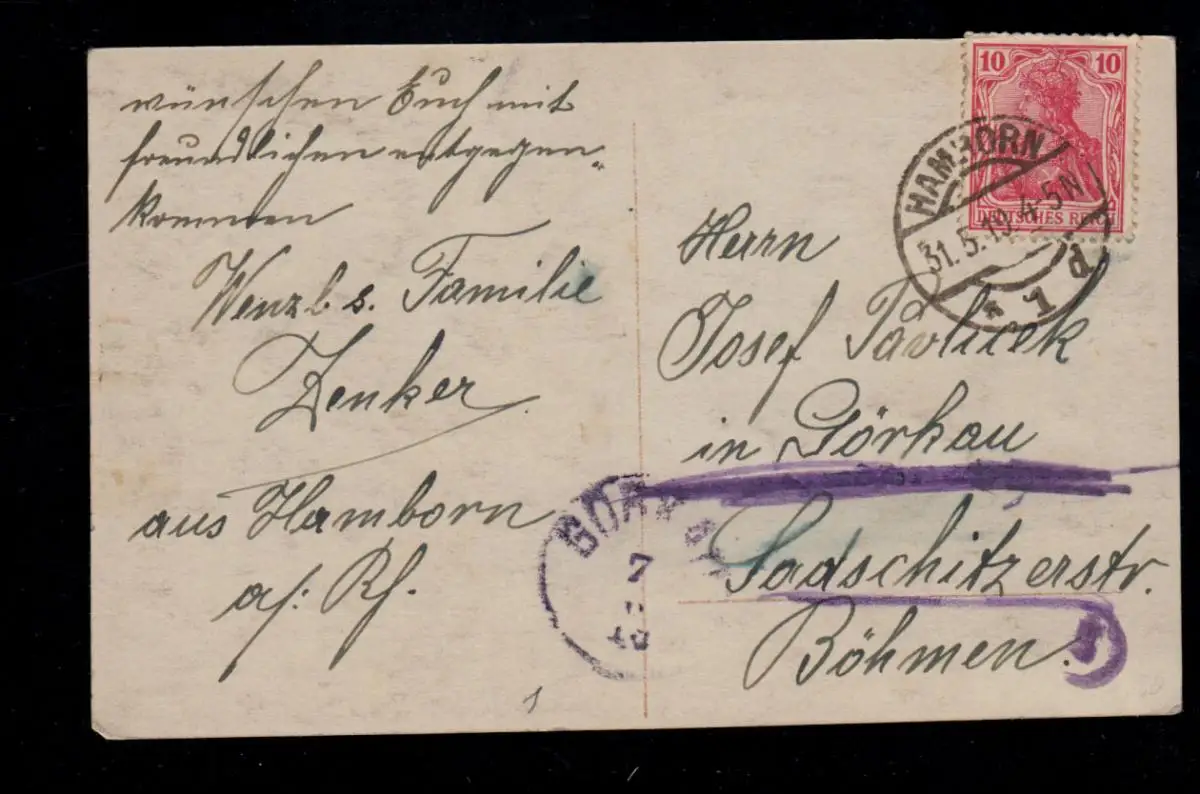 wünschen Euch mit
freundlichen entgegen„
kommen
Wenzl s. Familie
Zenker
aus Hamborn
a/: Rh.
10 10
DEUTSCHES REICH
HAMBORN
31.5.19. 4-5N
* 1 d
Herrn
Josef Pavlicek
in Görkau
Sadschitzerstr.
Böhmen.
GÖRKAU
1